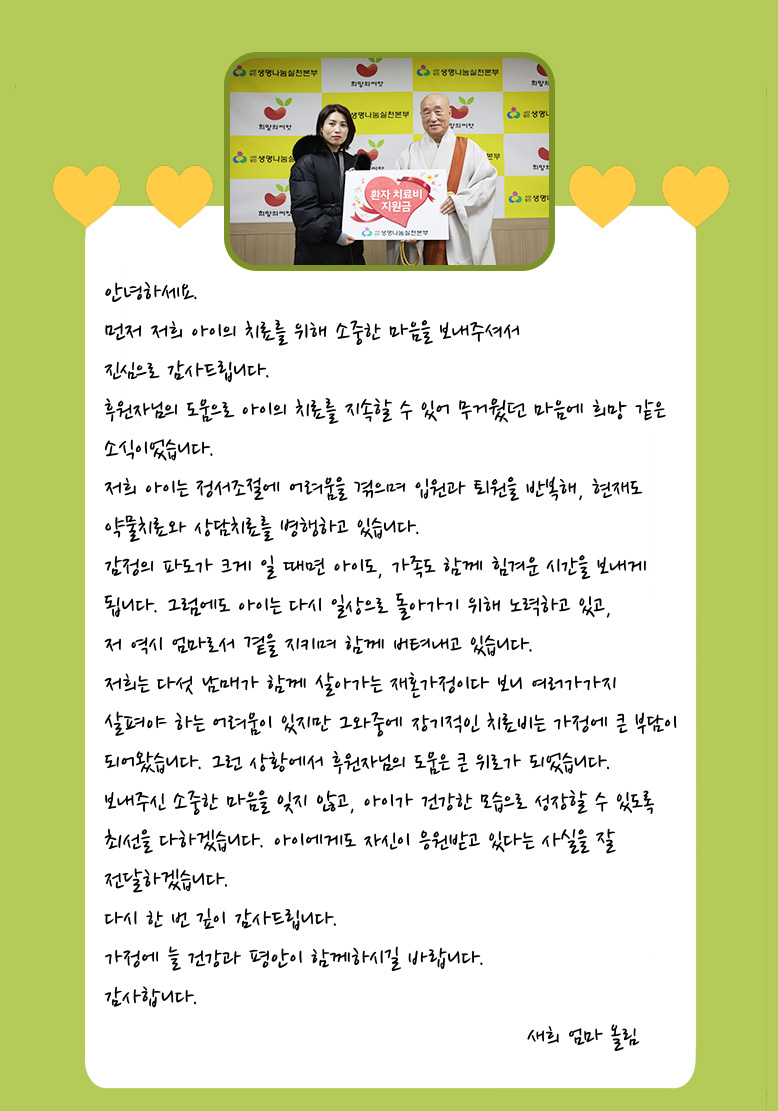 생명나눔실천본부
희망의씨앗
생명나눔실천본부
희망의씨앗
생명나눔실천본부
희망의씨앗
생명나눔실천본부
희망의씨앗
환자 치료비
지원금
생명나눔실천본부
안녕하세요.
먼저 저희 아이의 치료를 위해 소중한 마음을 보내주셔서
진심으로 감사드립니다.
후원자님의 도움으로 아이의 치료를 지속할 수 있어 무거웠던 마음에 희망 같은
소식이었습니다.
저희 아이는 정서조절에 어려움을 겪으며 입원과 퇴원을 반복해, 현재도
약물치료와 상담치료를 병행하고 있습니다.
감정의 파도가 크게 일 때면 아이도, 가족도 함께 힘겨운 시간을 보내게
됩니다. 그럼에도 아이는 다시 일상으로 돌아가기 위해 노력하고 있고,
저 역시 엄마로서 곁을 지키며 함께 버텨내고 있습니다.
저희는 다섯 남매가 함께 살아가는 재혼가정이다 보니 여러가가지
살펴야 하는 어려움이 있지만 그와중에 장기적인 치료비는 가정에 큰 부담이
되어왔습니다. 그런 상황에서 후원자님의 도움은 큰 위로가 되었습니다.
보내주신 소중한 마음을 잊지 않고, 아이가 건강한 모습으로 성장할 수 있도록
최선을 다하겠습니다. 아이에게도 자신이 응원받고 있다는 사실을 잘
전달하겠습니다.
다시 한 번 깊이 감사드립니다.
가정에 늘 건강과 평안이 함께하시길 바랍니다.
감사합니다.
새희 엄마 올림